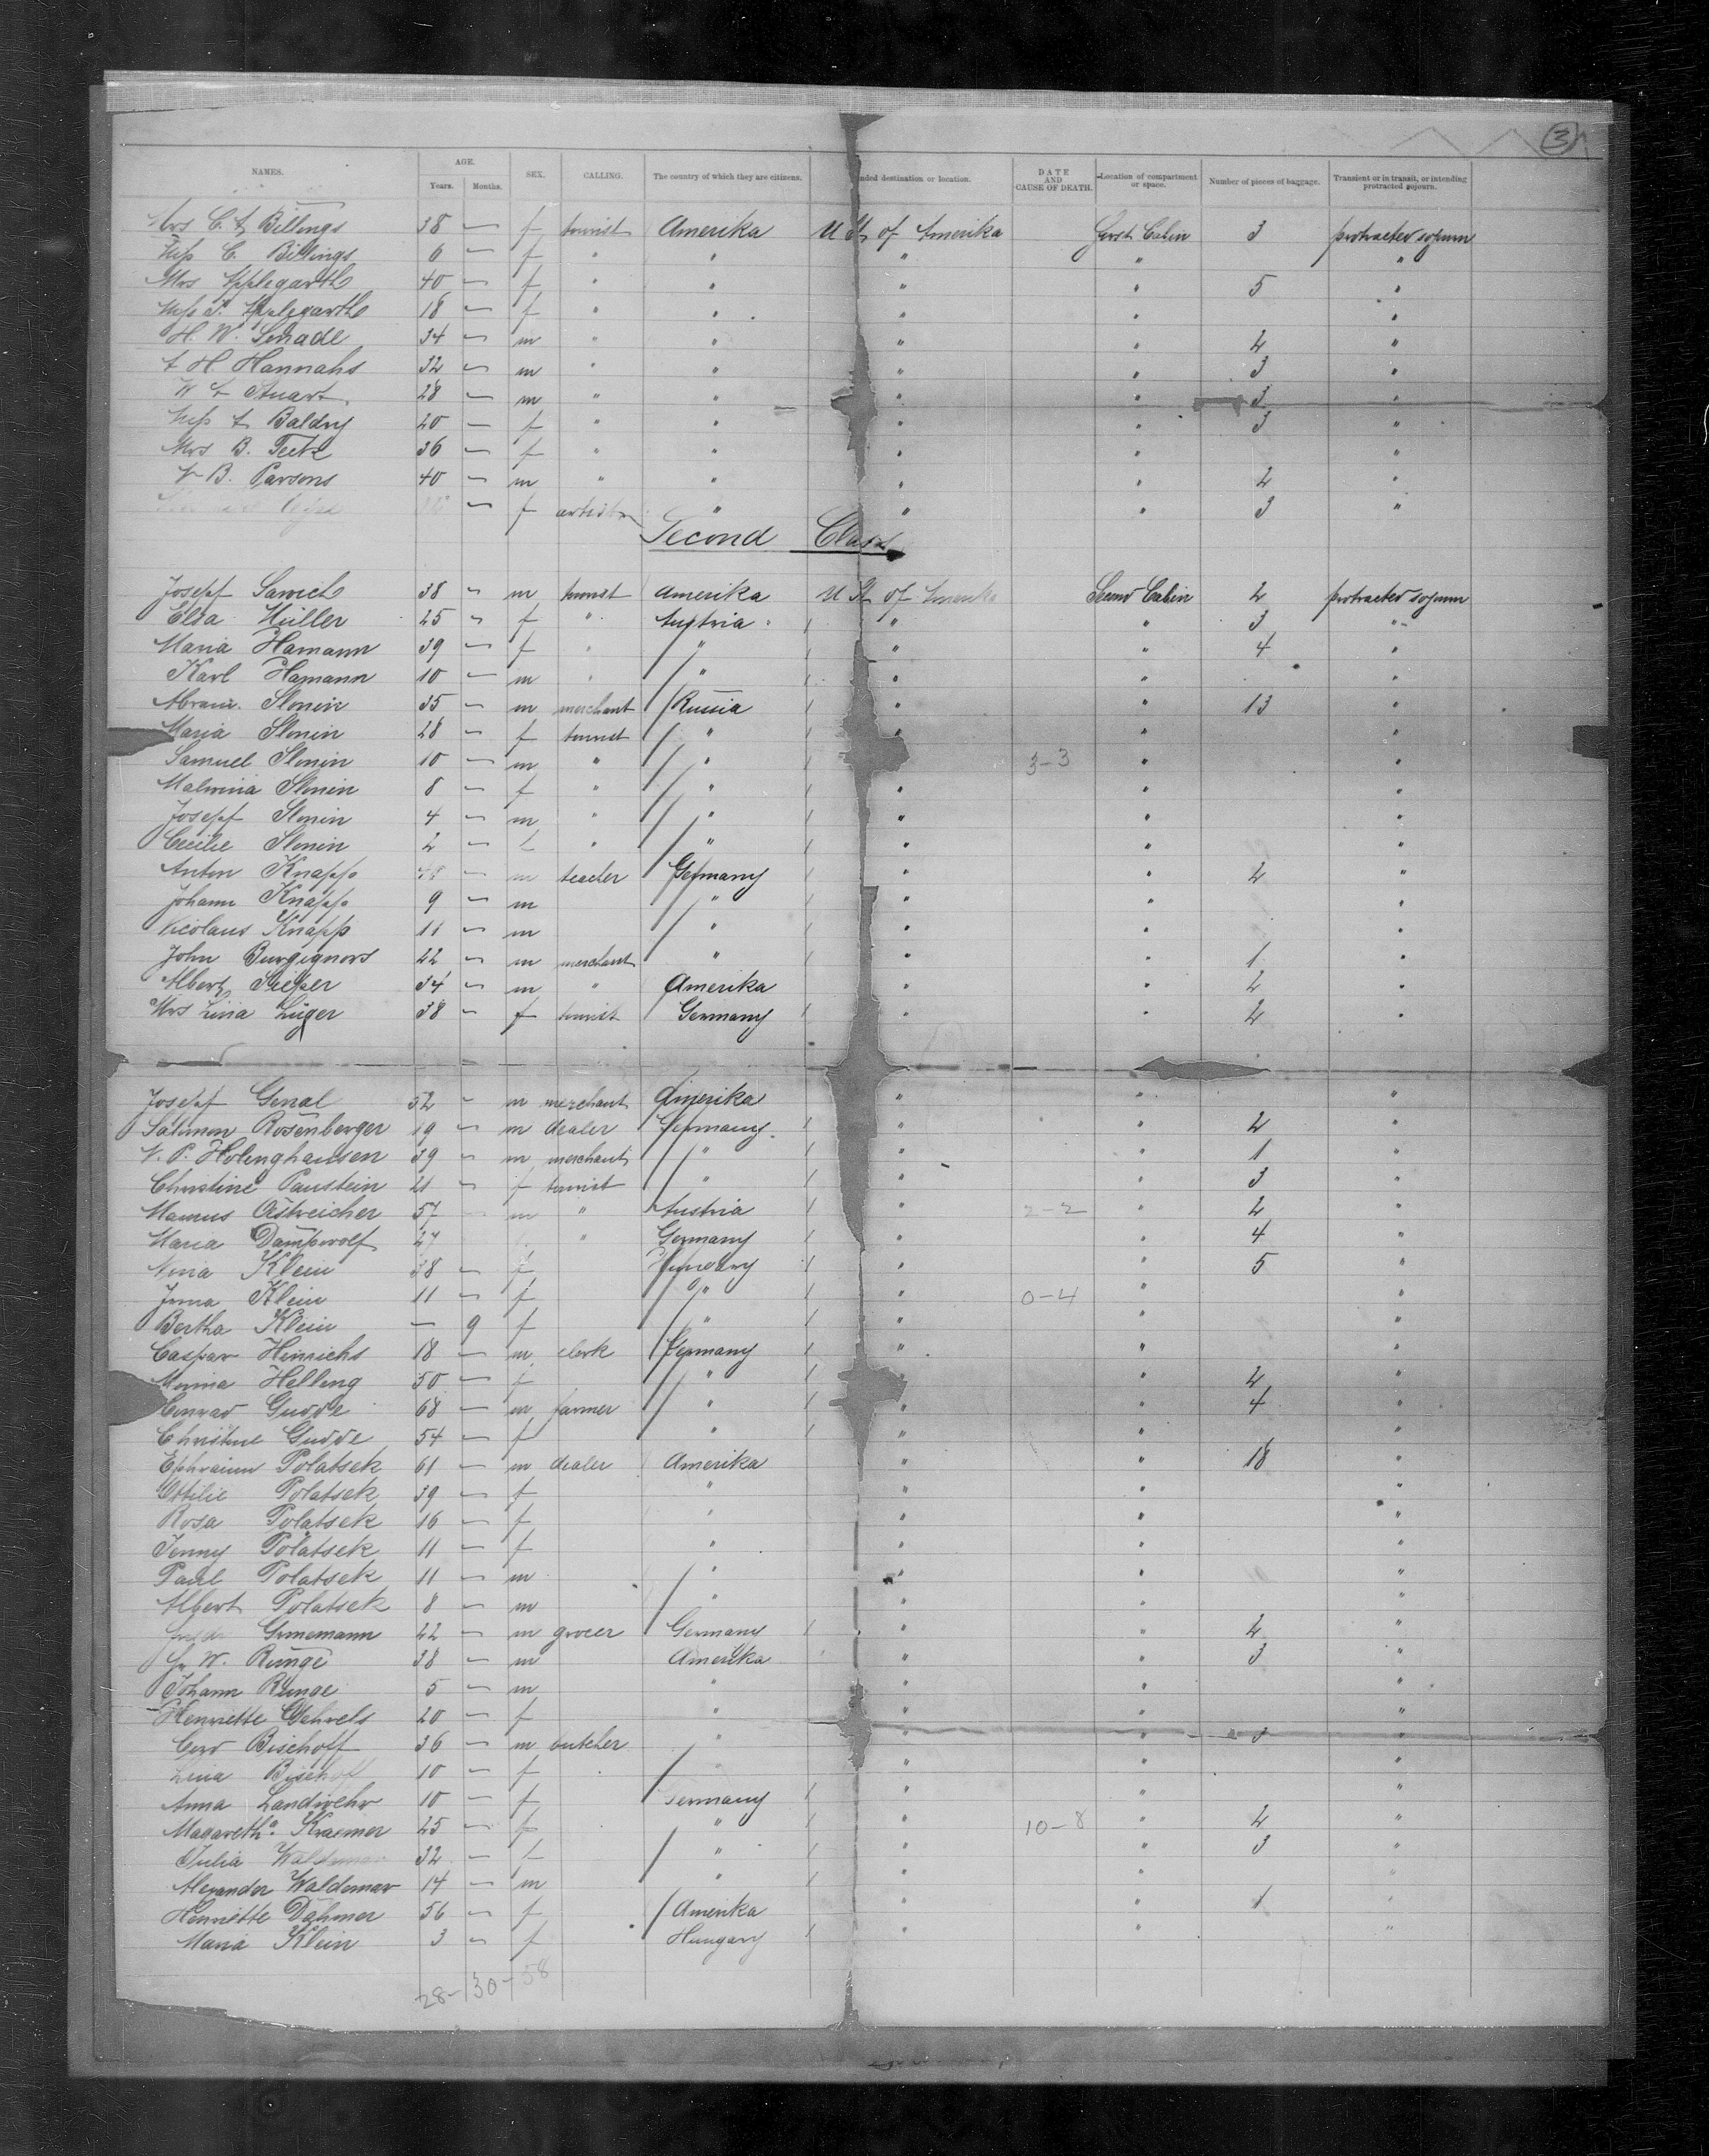 3
NAMES. AGE. Years. Months. SEX. CALLING. The country of which they are citizens. nded destination or location. DATE AND CAUSE OF DEATH. Location of compartment or space. Number of pieces of baggage. Transient or in transit, or intending protracted sojourn.
Mrs C. A Billings 38 — f tourist Amerika U St of Amerika First Cabin 3 protracted sojourn
Miss C. Billings 6 — f " " " " "
Mrs Applegarth 40 — f " " " " 5 "
Miss S. Applegarth 18 — f " " " " "
H. W. Schade 34 — m " " " " 2 "
A H Hannahs 32 — m " " " " 3 "
W L Stuart. 28 — m " " " " 3 "
Miss A Baldry 20 — f " " " " 3 "
Mrs B. Teck 36 — f " " " " "
W B. Parsons 40 — m " " " " 2 "
— f artist " " " 3 "
Second Class
Josepf Sawich 38 — m tourist Amerika U St of Amerika Second Cabin 2 protracted sojourn
Elsa Müller 25 — f " Austria " " 3 "
Maria Hamann 39 — f " " " " 4 "
Karl Hamann 10 — m " " " " "
Abram. Slonin 35 — m merchant Russia " " 13 "
Maria Slonin 28 — f tourist " " " "
Samuel Slonin 10 — m " " " 3-3 " "
Malwina Slonin 8 — f " " " " "
Josepf Slonin 4 — m " " " " "
Cecilie Slonin 2 — f " " " " "
Anton Knapp 48 — m Germany " " 2 "
Johann Knapp 9 — m " " " "
Nicolaus Knapp 11 — m " " " "
John Burgignors 22 — m merchant " " " 1 "
Albert Sieper 34 — m " Amerika " " 2 "
Mrs Lina Lüger 38 — f tourist Germany " " 2 "
Josepf Genal 52 — m merchant Amerika " " "
Salomon Rosenberger 19 — m dealer Germany " " 2 "
V. P. Holinghausen 39 — m merchant " " " 1 "
Christine Paustein 21 — f tourist " " " 3 "
Marcus Östreicher 57 — m " Austria " 2-2 " 2 "
Maria Dampwolf 27 " Germany " " 4 "
Nina Klein 38 — f Hungary " " 5 "
Irma Klein 11 — f " " 0-4 " "
Bertha Klein — 9 f " " " "
Caspar Hinrichs 18 — m clerk Germany " " "
Minna Helling 50 — f " " " 2 "
Conrad Gudde 68 — m farmer " " " 4 "
Christine Gudde 54 — f " " " "
Ephraim Polatsek 61 — m dealer Amerika " " 18 "
Ottilie Polatsek 39 — f " " " "
Rosa Polatsek 16 — f " " " "
Jenny Polatsek 11 — f " " " "
Paul Polatsek 11 — m " " " "
Albert Polatsek 8 — m " " " "
Grunemann 22 — m grocer Germany " " 2 "
Fr W. Runge 38 — m Amerika " " 3 "
Johann Runge 5 — m " " " "
Henriette Gehrels 20 — f " " " "
Cord Bischoff 36 — m butcher " " " 3 "
Lina Bischoff 10 — f " " " "
Anna Landwehr 10 — f Germany " " "
Magaretha Kraemer 25 — f " " 10-8 " 2 "
Julia Waldemar 32 — f " " " 3 "
Alexander Waldemar 14 — m " " " "
Henriette Dahmer 56 — f Amerika " " 1 "
Maria Klein 3 — f Hungary " " "
28-30-58